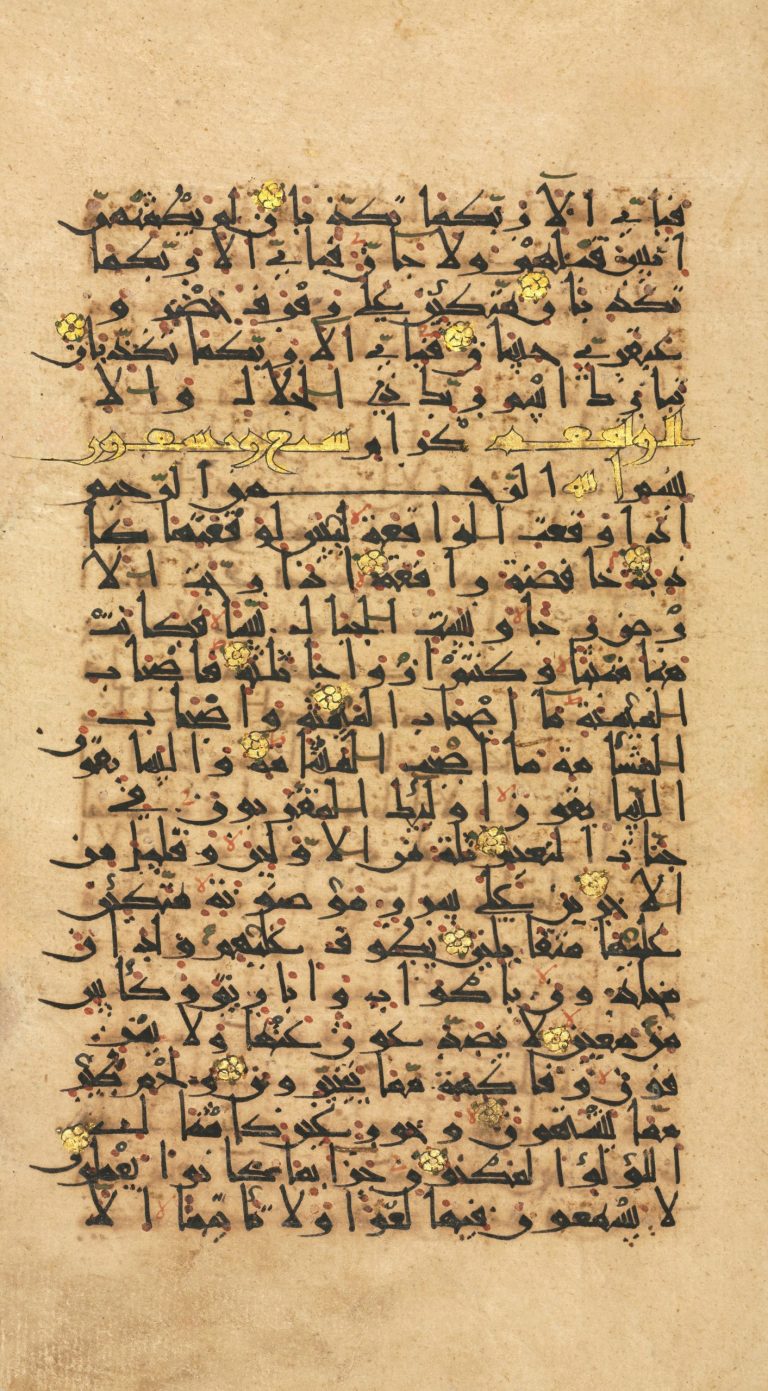 فبايّ الآ ربّكما تكذّبان لم يطْمثْهنّ
انس قبْلهمْ ولا جانّ فبايّ الآ ربّكما
تكذّبان متّكين على رفْرف خضْر و
عبقريّ حسان فبايّ الآ ربّكما تكذّبان
تبارك اسْم ربّك ذي الجلال والا
الواقعة كرام سبع وتسعون
بسم الله الرّحمن الرّحيم
اذا وقعت الواقعة ليْس لوقْعتها كا
ذبة خافضة رافعة اذا رجّت الا
رْض رجّا وبسّت الجبال بسّا فكانتْ
هبا منْبثّا وكنتمْ ازْواجا ثلثة فاصْحاب
الميْمنة مآ اصْحاب الميْمنة واصْحاب
المشْأمة مآ اصْحب المشْأمة والسّابقون
السّابقون اوليك المقرّبون في
جنّات النّعيم ثلّة من الاوّلين وقليل من
الاخرين على سرر موْضونة متّكين
عليْها متقابلين يطوف عليْهم ولدان
مخلّدون باكْواب واباريق وكأس
من معين لا يصدّعون عنْها ولا ينْز
فون وفاكهة ممّا يتخيّرون ولحْم طيْر
ممّا يشْتهون وحور عين كامْثال
اللّؤلؤا المكْنون جزآ بما كانوا يعْملون
لا يسْمعون فيها لغْوا ولا تأثيما الّا